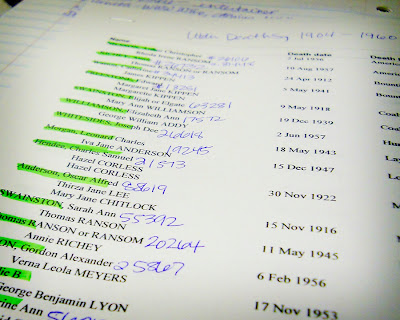 entertainer
Utah Deathsy 1904 - 1960
Name Death date Death
Christopher 7 Jul 1936 Ameri
RANSOM or RANSOM 10 Aug 1957 Americ
James KIPPEN 24 Apr 1912 Bounti
Margaret KIPPEN 5 May 1941 Bount
SWAINSTON, Elijah or Elgate 63281
Mary Ann WILLIAMSON 9 May 1918 Coal
WILLIAMSON, Elizabeth Ann 17572
George William ADDY 19 Dec 1939 Coa
WHITESIDES, Joseph Dee 26618 2 Jun 1957 Hu
Morgan, Leonard Charles
Iva Jane ANDERSON 19245 18 May 1943 La
Hendee, Charles Samuel 21573
Hazel CORLESS 15 Dec 1947 Lay
Hazel CORLESS
Anderson, Oscar Alfred 88619
Thirza Jane LEE 30 Nov 1922
Mary Jane CHITLOCK
SWAINSTON, Sarah Ann 55392
Thomas RANSON 15 Nov 1916
Thomas RANSON or RANSOM 20264
Annie RICHEY 11 May 1945
ON, Gordon Alexander 25867
Verna Leola MEYERS 6 Feb 1956
lie B
George Benjamin LYON 17 Nov 1953
rine Ann